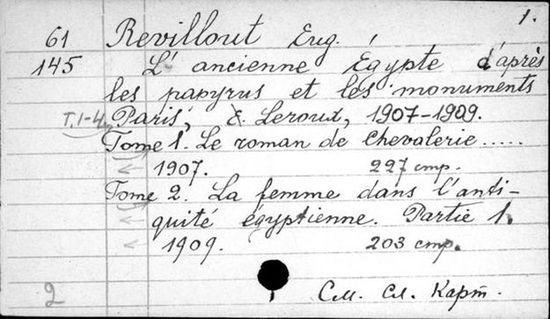 1.
61 Revillout Eug.
145 L'ancienne Égypte d'après
les papyrus et les monuments
T.1-4 Paris, E. Leroux, 1907-1909.
Tome 1. Le roman de chevalerie.....
1907. 227 стр.
Tome 2. La femme dans l'anti-
quité égyptienne. Partie 1.
1909. 203 стр.
2 См. сл. карт.